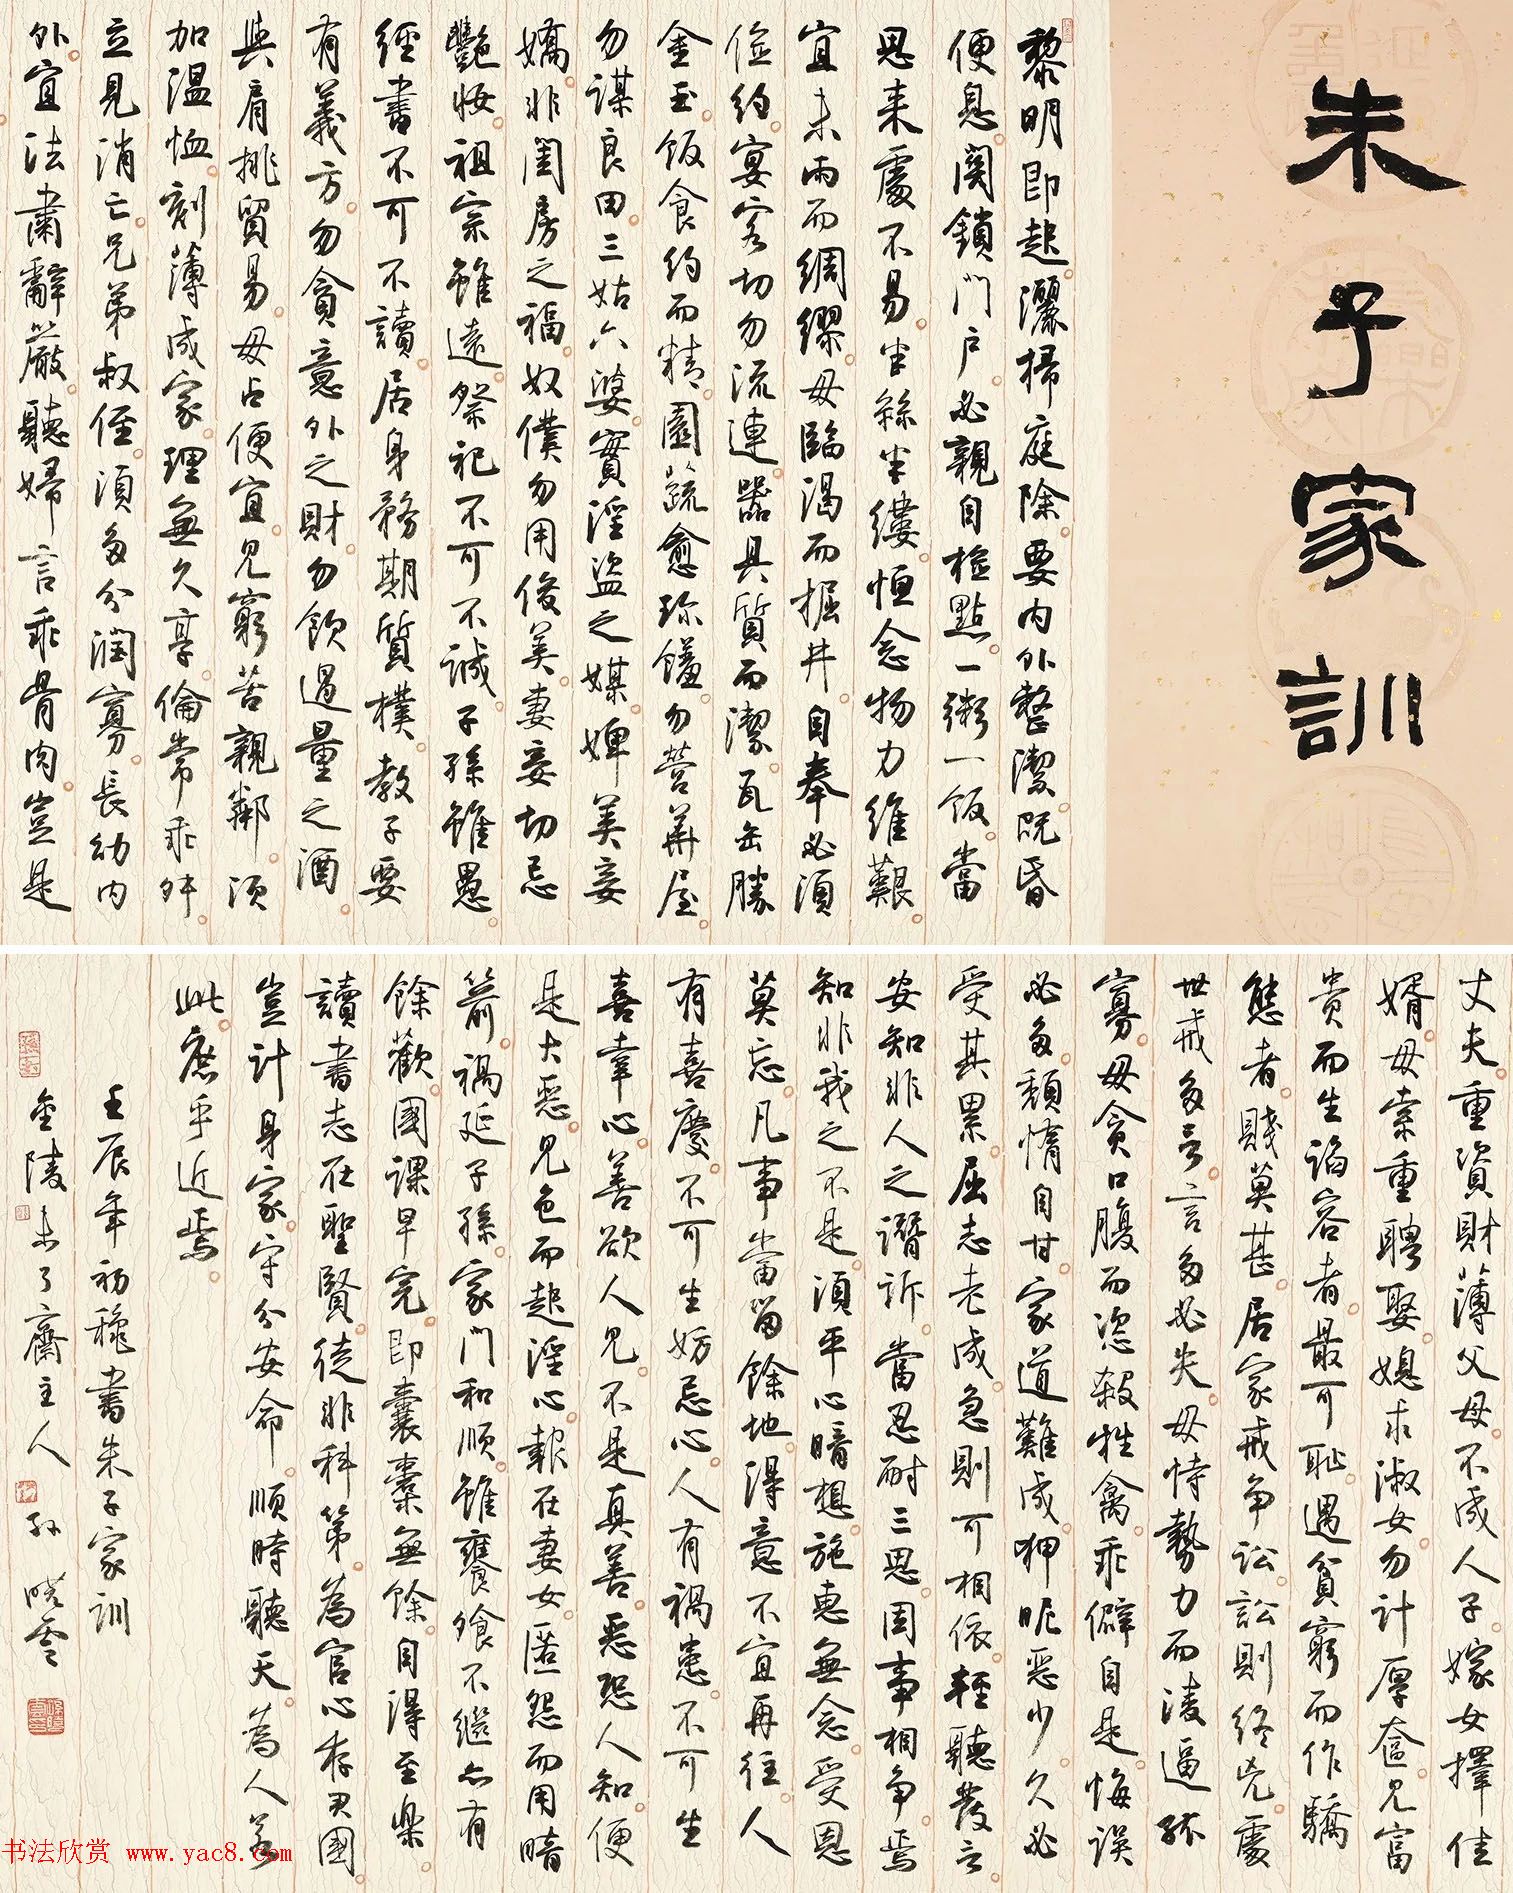 朱子家訓
黎明即起灑掃庭除要内外整潔既昏
便息関鎖門户必親自檢點一粥一飯當
思来處不易半絲半縷恒念物力維艱
宜未雨而綢繆毋臨渴而掘井自奉必須
儉約宴客切勿流連器具質而潔瓦缶勝
金玉飯食約而精園蔬愈珍饈勿營華屋
勿謀良田三姑六婆實淫盗之媒婢美妾
嬌非閨房之福奴僕勿用俊美妻妾切忌
艷妝祖宗雖遠祭祀不可不誠子孫雖愚
經書不可不讀居身務期質樸教子要
有義方勿貪意外之財勿飲過量之酒
與肩挑貿易毋占便宜見窮苦親鄰須
加温恤刻薄成家理無久享倫常乖舛
立見消亡兄弟叔侄須多分潤寡長幼内
外宜法肅辭嚴聽婦言乖骨肉豈是
丈夫重資財薄父母不成人子嫁女擇佳
婿毋索重聘娶媳求淑女勿計厚奩見富
贵而生谄容者最可恥遇貧窮而作驕
態者賤莫甚居家戒争訟訟則終凶處
世戒多言言多必失毋恃勢力而凌逼孤
寡毋貪口腹而恣殺牲禽乖僻自是悔誤
必多頹惰自甘家道難成狎昵惡少久必
受其累屈志老成急則可相依輕聽發言
安知非人之譖訴當忍耐三思因事相争焉
知非我之不是須平心暗想施惠無念受恩
莫忘凡事當留餘地得意不宜再往人
有喜慶不可生妨忌心人有禍患不可生
喜幸心善欲人見不是真善惡恐人知便
是大惡見色而起淫心報在妻女匿怨而用暗
箭禍延子孫家門和順雖饔飧不繼亦有
餘歡國課早完即囊橐無餘自得至樂
讀書志在聖賢徒非科第為官心存君國
豈計身家守分安命順時聽天為人若
此庶乎近焉
壬辰年初穐書朱子家訓
金陵未了齋主人 孙晓雲
书法欣赏 www.yac8.com